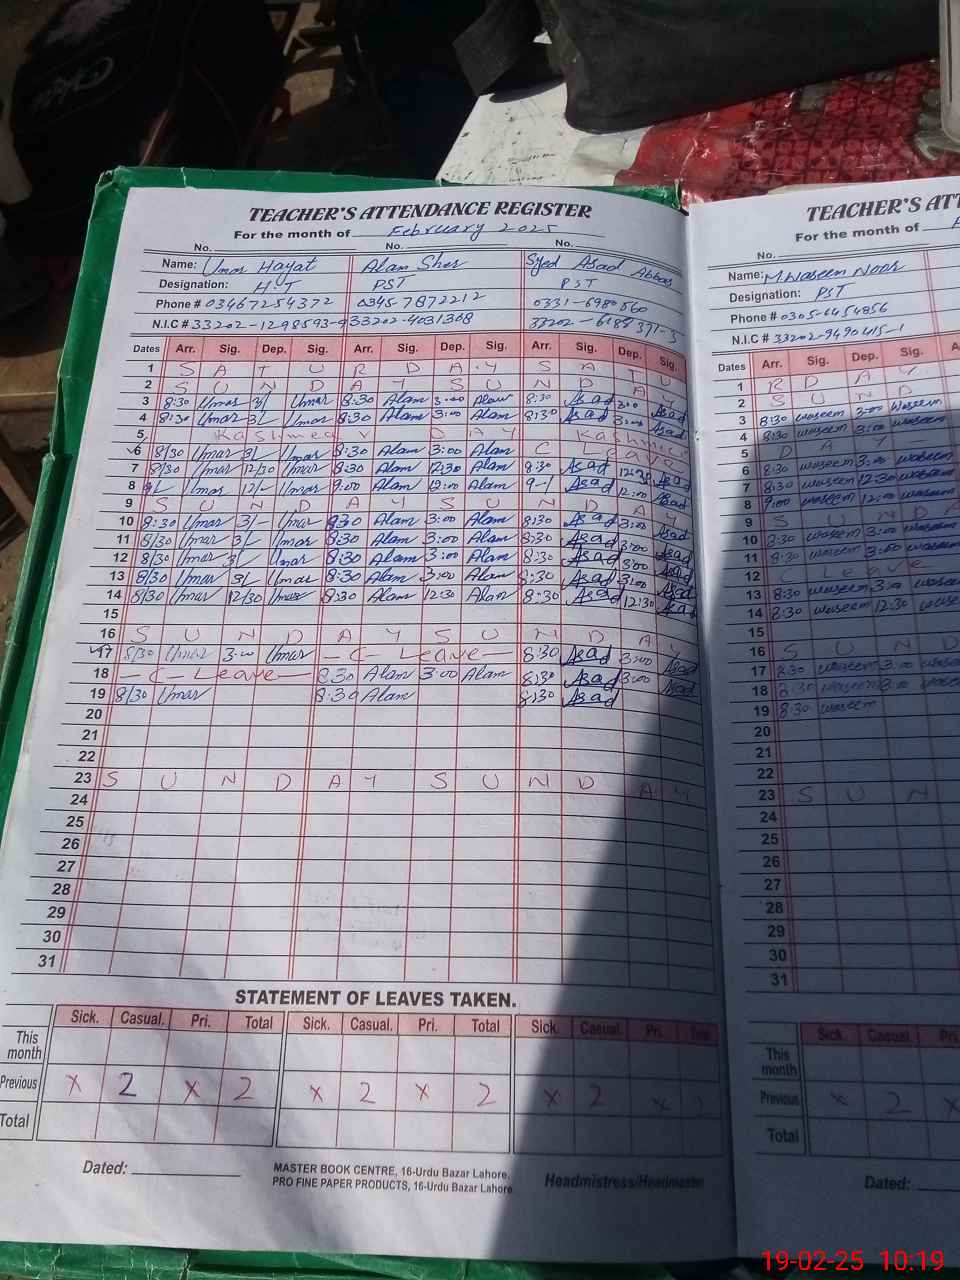 TEACHER'S ATTENDANCE REGISTER
For the month of February 2025
No. No. No.
Name: Umar Hayat Alam Sher Syed Asad Abbas
Designation: H.T PST PST
Phone # 03467254372 0345-7872212 0331-6980560
N.I.C # 33202-1298593-9 33202-4031368 33202-6188371-5
Dates Arr. Sig. Dep. Sig. Arr. Sig. Dep. Sig. Arr. Sig. Dep. Sig.
1 S A T U R D A Y S A T U
2 S U N D A Y S U N D A Y
3 8:30 Umar 3/ Umar 8:30 Alam 3:00 Alam 8:30 Asad 3:00 Asad
4 8:30 Umar 3/ Umar 8:30 Alam 3:00 Alam 8:30 Asad 3:00 Asad
5 Kashmer D A Y Kashmer
6 8/30 Umar 3/ Umar 8:30 Alam 3:00 Alam C Leave
7 8/30 Umar 12/30 Umar 8:30 Alam 12:30 Alam 8:30 Asad 12:30 Asad
8 9/ Umar 12/- Umar 9:00 Alam 12:00 Alam Asad 12:00 Asad
9 S U N D A Y S U N D A Y
10 8:30 Umar 3/- Umar 8:30 Alam 3:00 Alam 8:30 Asad 3:00 Asad
11 8/30 Umar 3/ Umar 8:30 Alam 3:00 Alam 8:30 Asad 3:00 Asad
12 8/30 Umar 3/ Umar 8:30 Alam 3:00 Alam 8:30 Asad 3:00 Asad
13 8/30 Umar 3/ Umar 8:30 Alam 3:00 Alam 8:30 Asad 3:00 Asad
14 8/30 Umar 12/30 Umar 8:30 Alam 12:30 Alam 8:30 Asad 12:30 Asad
15
16 S U N D A Y S U N D A Y
17 8/30 Umar 3:00 Umar - C - Leave - 8:30 Asad 3:00 Asad
18 - C - Leave - 8:30 Alam 3:00 Alam 8:30 Asad 3:00 Asad
19 8/30 Umar 8:30 Alam 8:30 Asad
20
21
22
23 S U N D A Y S U N D A Y
24
25
26
27
28
29
30
31
STATEMENT OF LEAVES TAKEN.
Sick. Casual. Pri. Total Sick. Casual. Pri. Total Sick. Casual. Pri. Total
This month
Previous x 2 x 2 x 2 x 2 x 2 x
Total
Dated:
MASTER BOOK CENTRE, 16-Urdu Bazar Lahore.
PRO FINE PAPER PRODUCTS, 16-Urdu Bazar Lahore
Headmistress/Headmaster
TEACHER'S ATT
For the month of
No.
Name: M. Waseem Noor
Designation: PST
Phone # 0305-6454856
N.I.C # 33202-9490415-1
Dates Arr. Sig. Dep. Sig.
1 R D A Y
2 S U N D
3 8:30 waseem 3:00 waseem
4 8:30 waseem 3:00 waseem
5 D A Y
6 8:30 waseem 3:00 waseem
7 8:30 waseem 12:30 waseem
8 9:00 waseem 12:00 waseem
9 S U N D A
10 8:30 waseem 3:00 waseem
11 8:30 waseem 3:00 waseem
12 C Leave
13 8:30 waseem 3:00 waseem
14 8:30 waseem 12:30 waseem
15
16 S U N D
17 8:30 waseem 3:00 waseem
18 8:30 waseem 3:00 waseem
19 8:30 waseem
20
21
22
23 S U N
24
25
26
27
28
29
30
31
Sick Casual Pri.
This month
Previous x 2 x
Total
Dated:
19-02-25 10:19